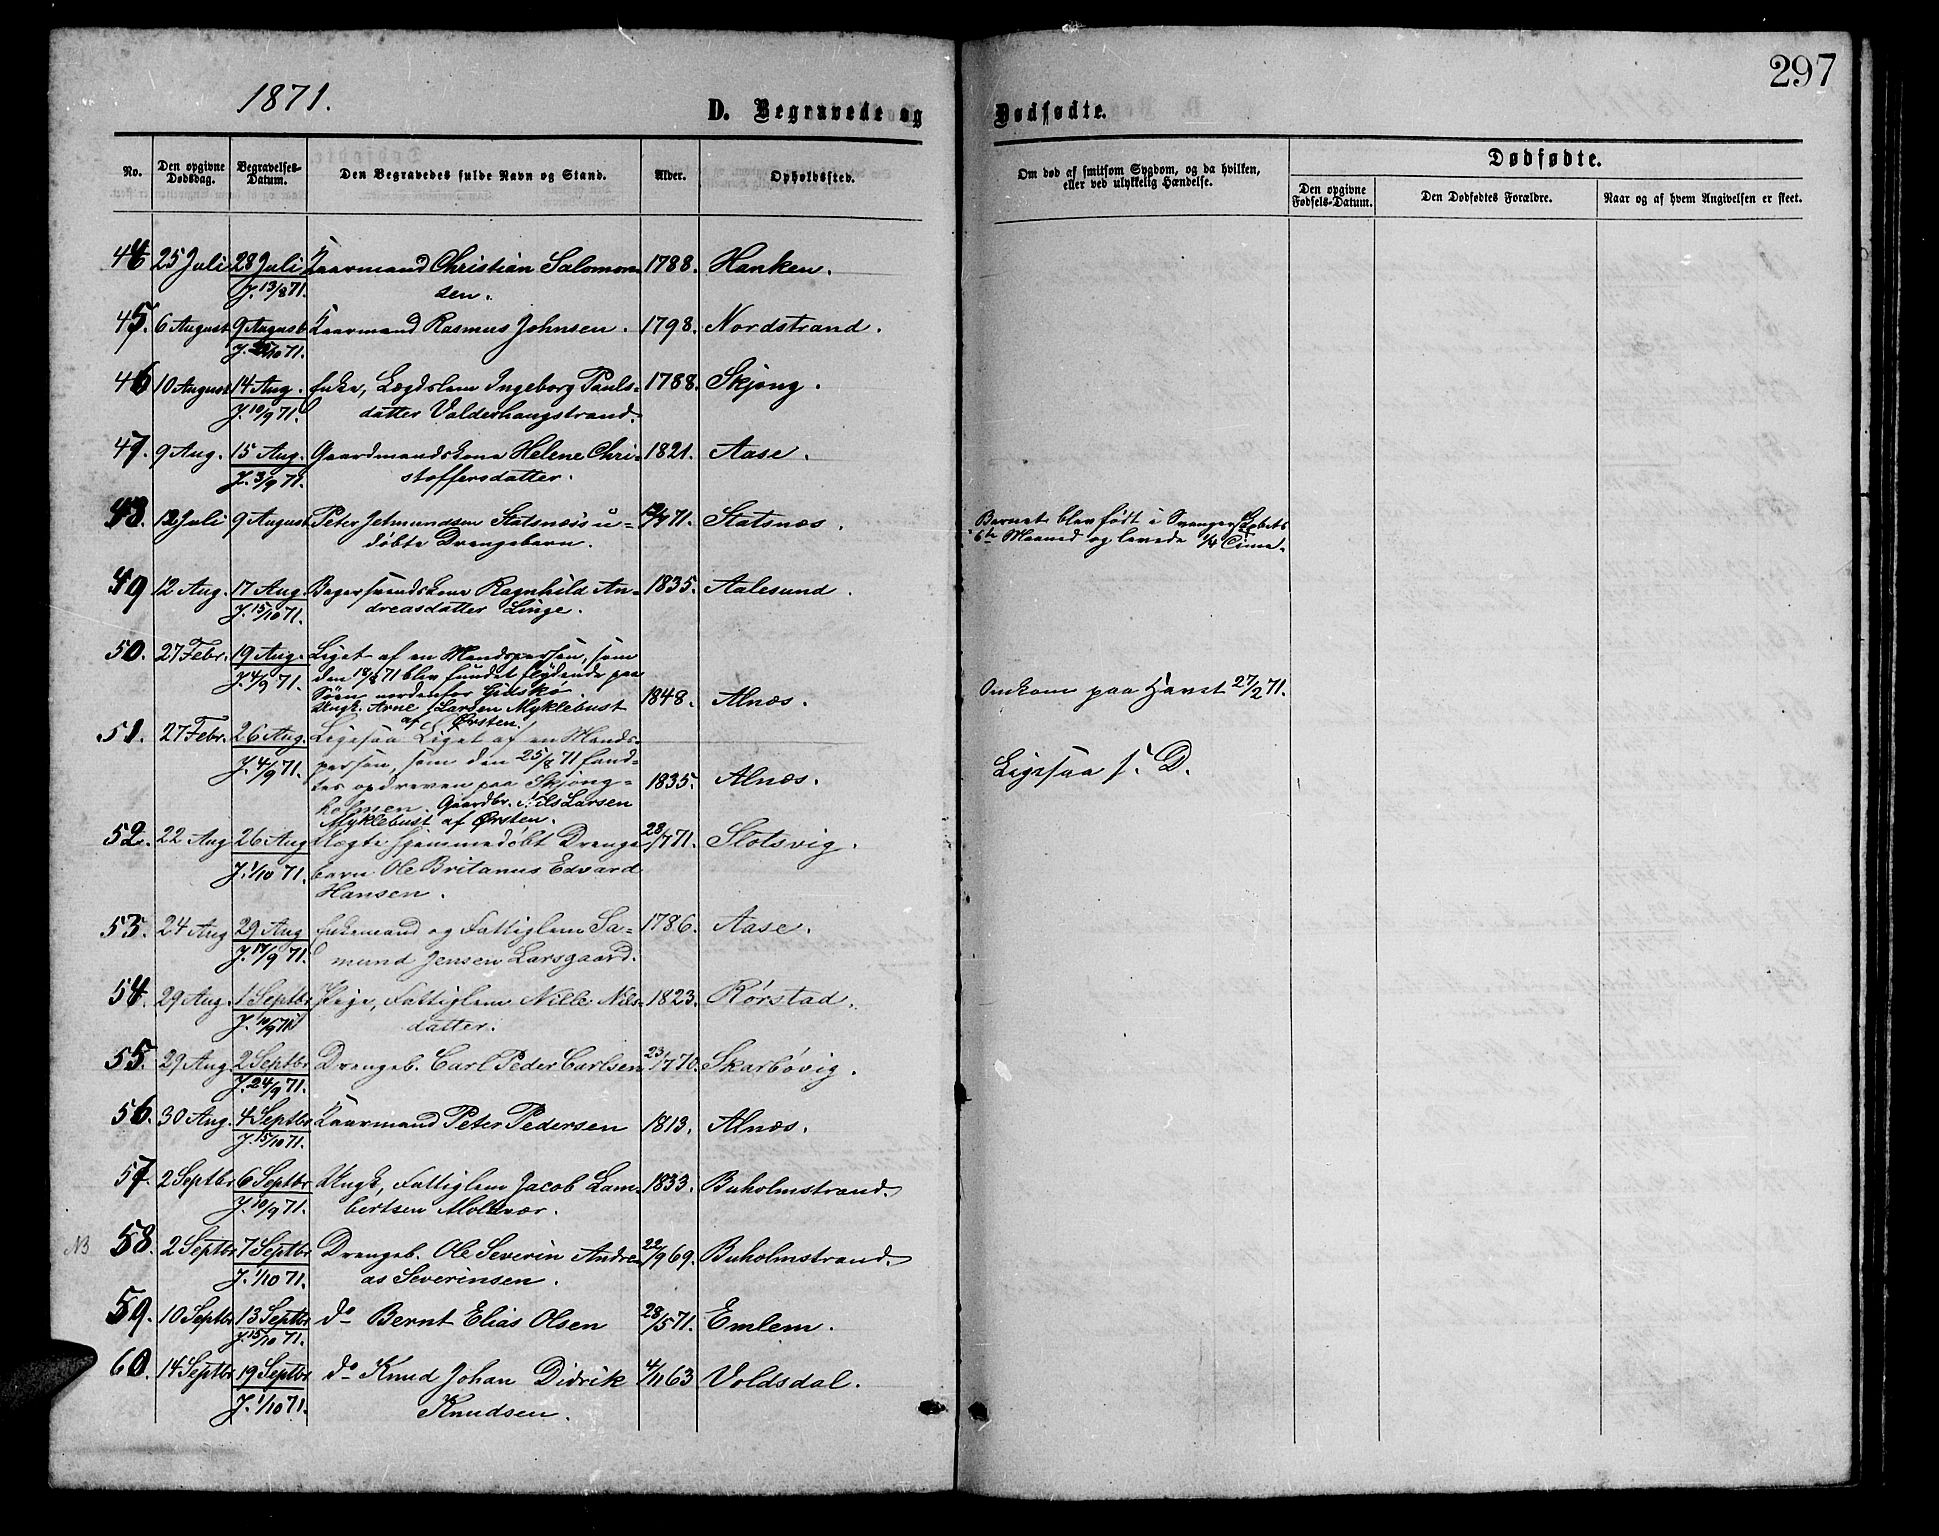 297
1871.
D. Begravede og Dødfødte.
No. Den opgivne Dødsdag. Begravelses-Datum. Den Begravedes fulde Navn og Stand. Alder. Opholdssted. Om død af smitsom Sygdom, og da hvilken, eller ved ulykkelig Hændelse. Dødfødte.
Den opgivne Fødsels-Datum. Den Dødfødtes Forældre. Naar og af hvem Angivelsen er skeet.
44 25 Juli 28 Juli Kaarmand Christian Salomon- 1788. Hanken.
J. 13/8 71. sen.
45. 6 August 9 August Kaarmand Rasmus Johnsen. 1798. Nordstrand.
J. /10 71.
46 10 August 14 Aug. Enke, Lægdslem Ingeborg Pauls- 1788. Skjong.
J. 10/9 71. datter Valderhaugstrand.
47. 9 Aug. 15 Aug. Gaardmandskone Helene Chri- 1821. Aase.
J. 3/9 71. stoffersdatter.
48. 12 Juli 9 August Peter Jetmundsen Statsnæs's u- 12/7 71. Statsnæs. Barnet blev født i Svangerskabets
døbte Drengebarn. 6te Maaned og levede 1/4 Time.
49 12 Aug. 17 Aug. Bagersvendskone Ragnhild An- 1835. Aalesund.
J. 15/10 71. dreasdatter Linge.
50. 27 Febr. 19 Aug. Liget af en Mandsperson, som
J. 4/9 71. den 18/8 71 blev fundet flydende paa
Søen nordenfor Gidskø. 1848. Alnæs. Omkom paa Havet 27/2 71.
Ungk. Arne Larsen Myklebust
af Ørsten.
51. 27 Febr. 26 Aug. Ligesaa Liget af en Mands-
J. 4/9 71. person, som den 25/8 71 fand- Ligesaa s. D.
tes opdreven paa Skjong- 1835. Alnæs.
holmen. Gaardbr. Nils Larsen
Myklebust af Ørsten.
52. 22 Aug 26 Aug Ægte hjemmedøbt Drenge- 28/7 71. Slotsvig.
J. 1/10 71. barn Ole Britanus Edvard
Hansen.
53. 24 Aug 29 Aug Enkemand og Fattiglem Sa- 1786. Aase.
J. 17/9 71. mund Jensen Larsgaard.
54. 29 Aug. 1 Septbr Pige, Fattiglem Nille Nils- 1823. Rørstad.
J. 10/9 71 datter.
55. 29 Aug 2 Septbr Drengeb. Carl Peder Carlsen 23/7 70. Skarbøvig.
J. 24/9 71.
56. 30 Aug. 4 Septbr Kaarmand Peter Pedersen 1813. Alnæs.
J. 15/10 71.
57. 2 Septbr 6 Septbr Ungk., Fattiglem Jacob Lam- 1833. Buholmstrand.
J. 10/9 71. bertsen Molvær.
NB 58. 2 Septbr 7 Septbr Drengeb. Ole Severin Andre- 22/9 69. Buholmstrand.
J. 1/10 71. as Severinsen.
59. 10 Septbr 13 Septbr do Bernt Elias Olsen 28/5 71. Emlem.
J. 15/10 71.
60. 14 Septbr 19 Septbr do Knud Johan Didrik 4/11 63 Voldsdal.
J. 1/10 71. Knudsen.